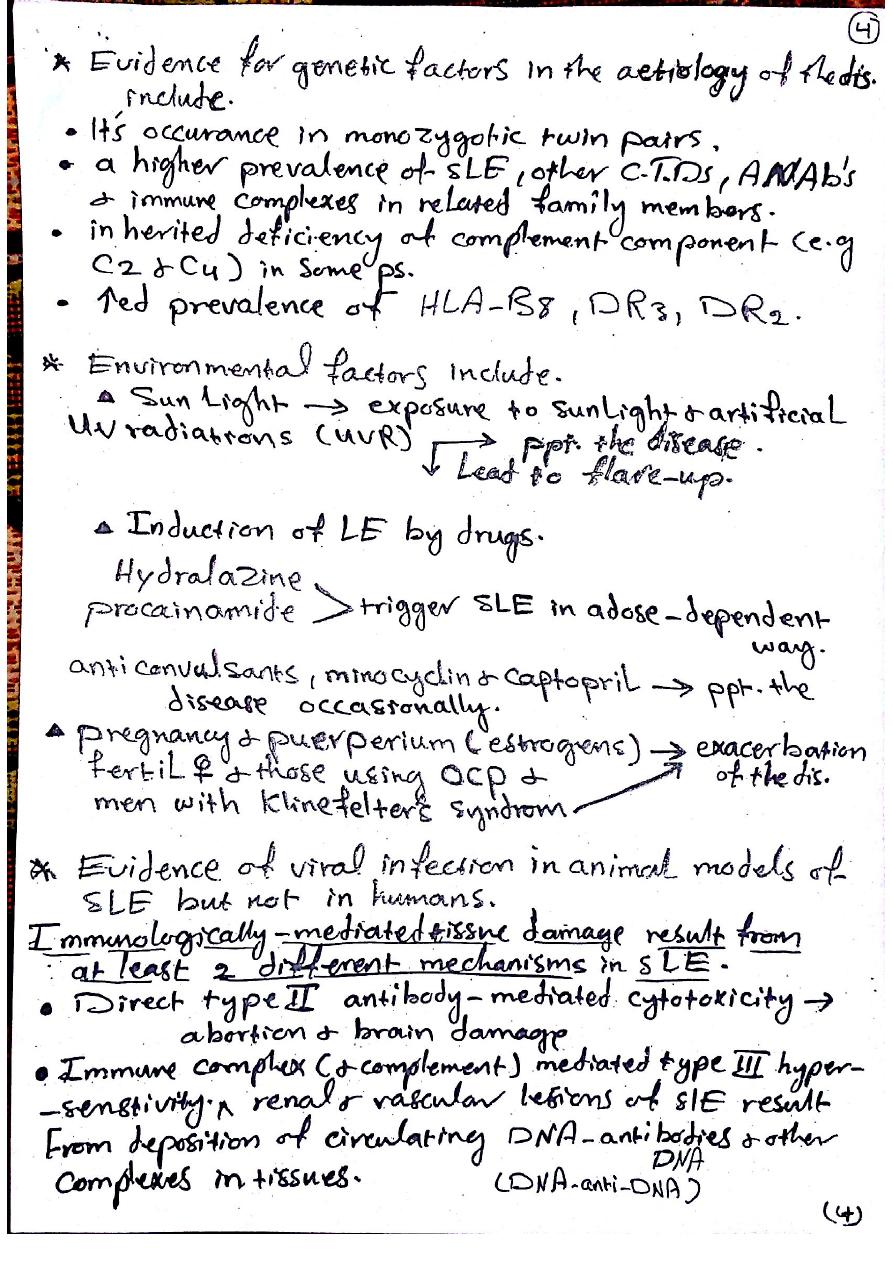 4
* Evidence for genetic factors in the aetiology of the dis.
include.
• It's occurance in monozygotic twin pairs.
• a higher prevalence of SLE, other C.T.Ds, ANAb's
& immune complexes in related family members.
• inherited deficiency of complement component (e.g
C2 & C4) in some ps.
• ↑ed prevalence of HLA-B8, DR3, DR2.
* Environmental factors include.
▲ Sun Light → exposure to sunLight & artificial
UV radiations (UVR) → ppt. the disease.
↓ Lead to flare-up.
▲ Induction of LE by drugs.
Hydralazine
procainamide > trigger SLE in a dose-dependent
way.
anticonvulsants, minocyclin & captopril → ppt. the
disease occasionally.
▲ pregnancy & puerperium (estrogens) → exacerbation
fertil ♀ & those using OCP & of the dis.
men with Klinefelter's syndrom
* Evidence of viral infection in animal models of
SLE but not in humans.
Immunologically-mediated tissue damage result from
at least 2 different mechanisms in SLE.
• Direct type II antibody-mediated cytotoxicity →
abortion & brain damage
• Immune complex (& complement) mediated type III hyper-
-senstivity. ∧ renal & vascular lesions of SLE result
From deposition of circulating DNA-antibodies & other
DNA
complexes in tissues. (DNA-anti-DNA)
(4)